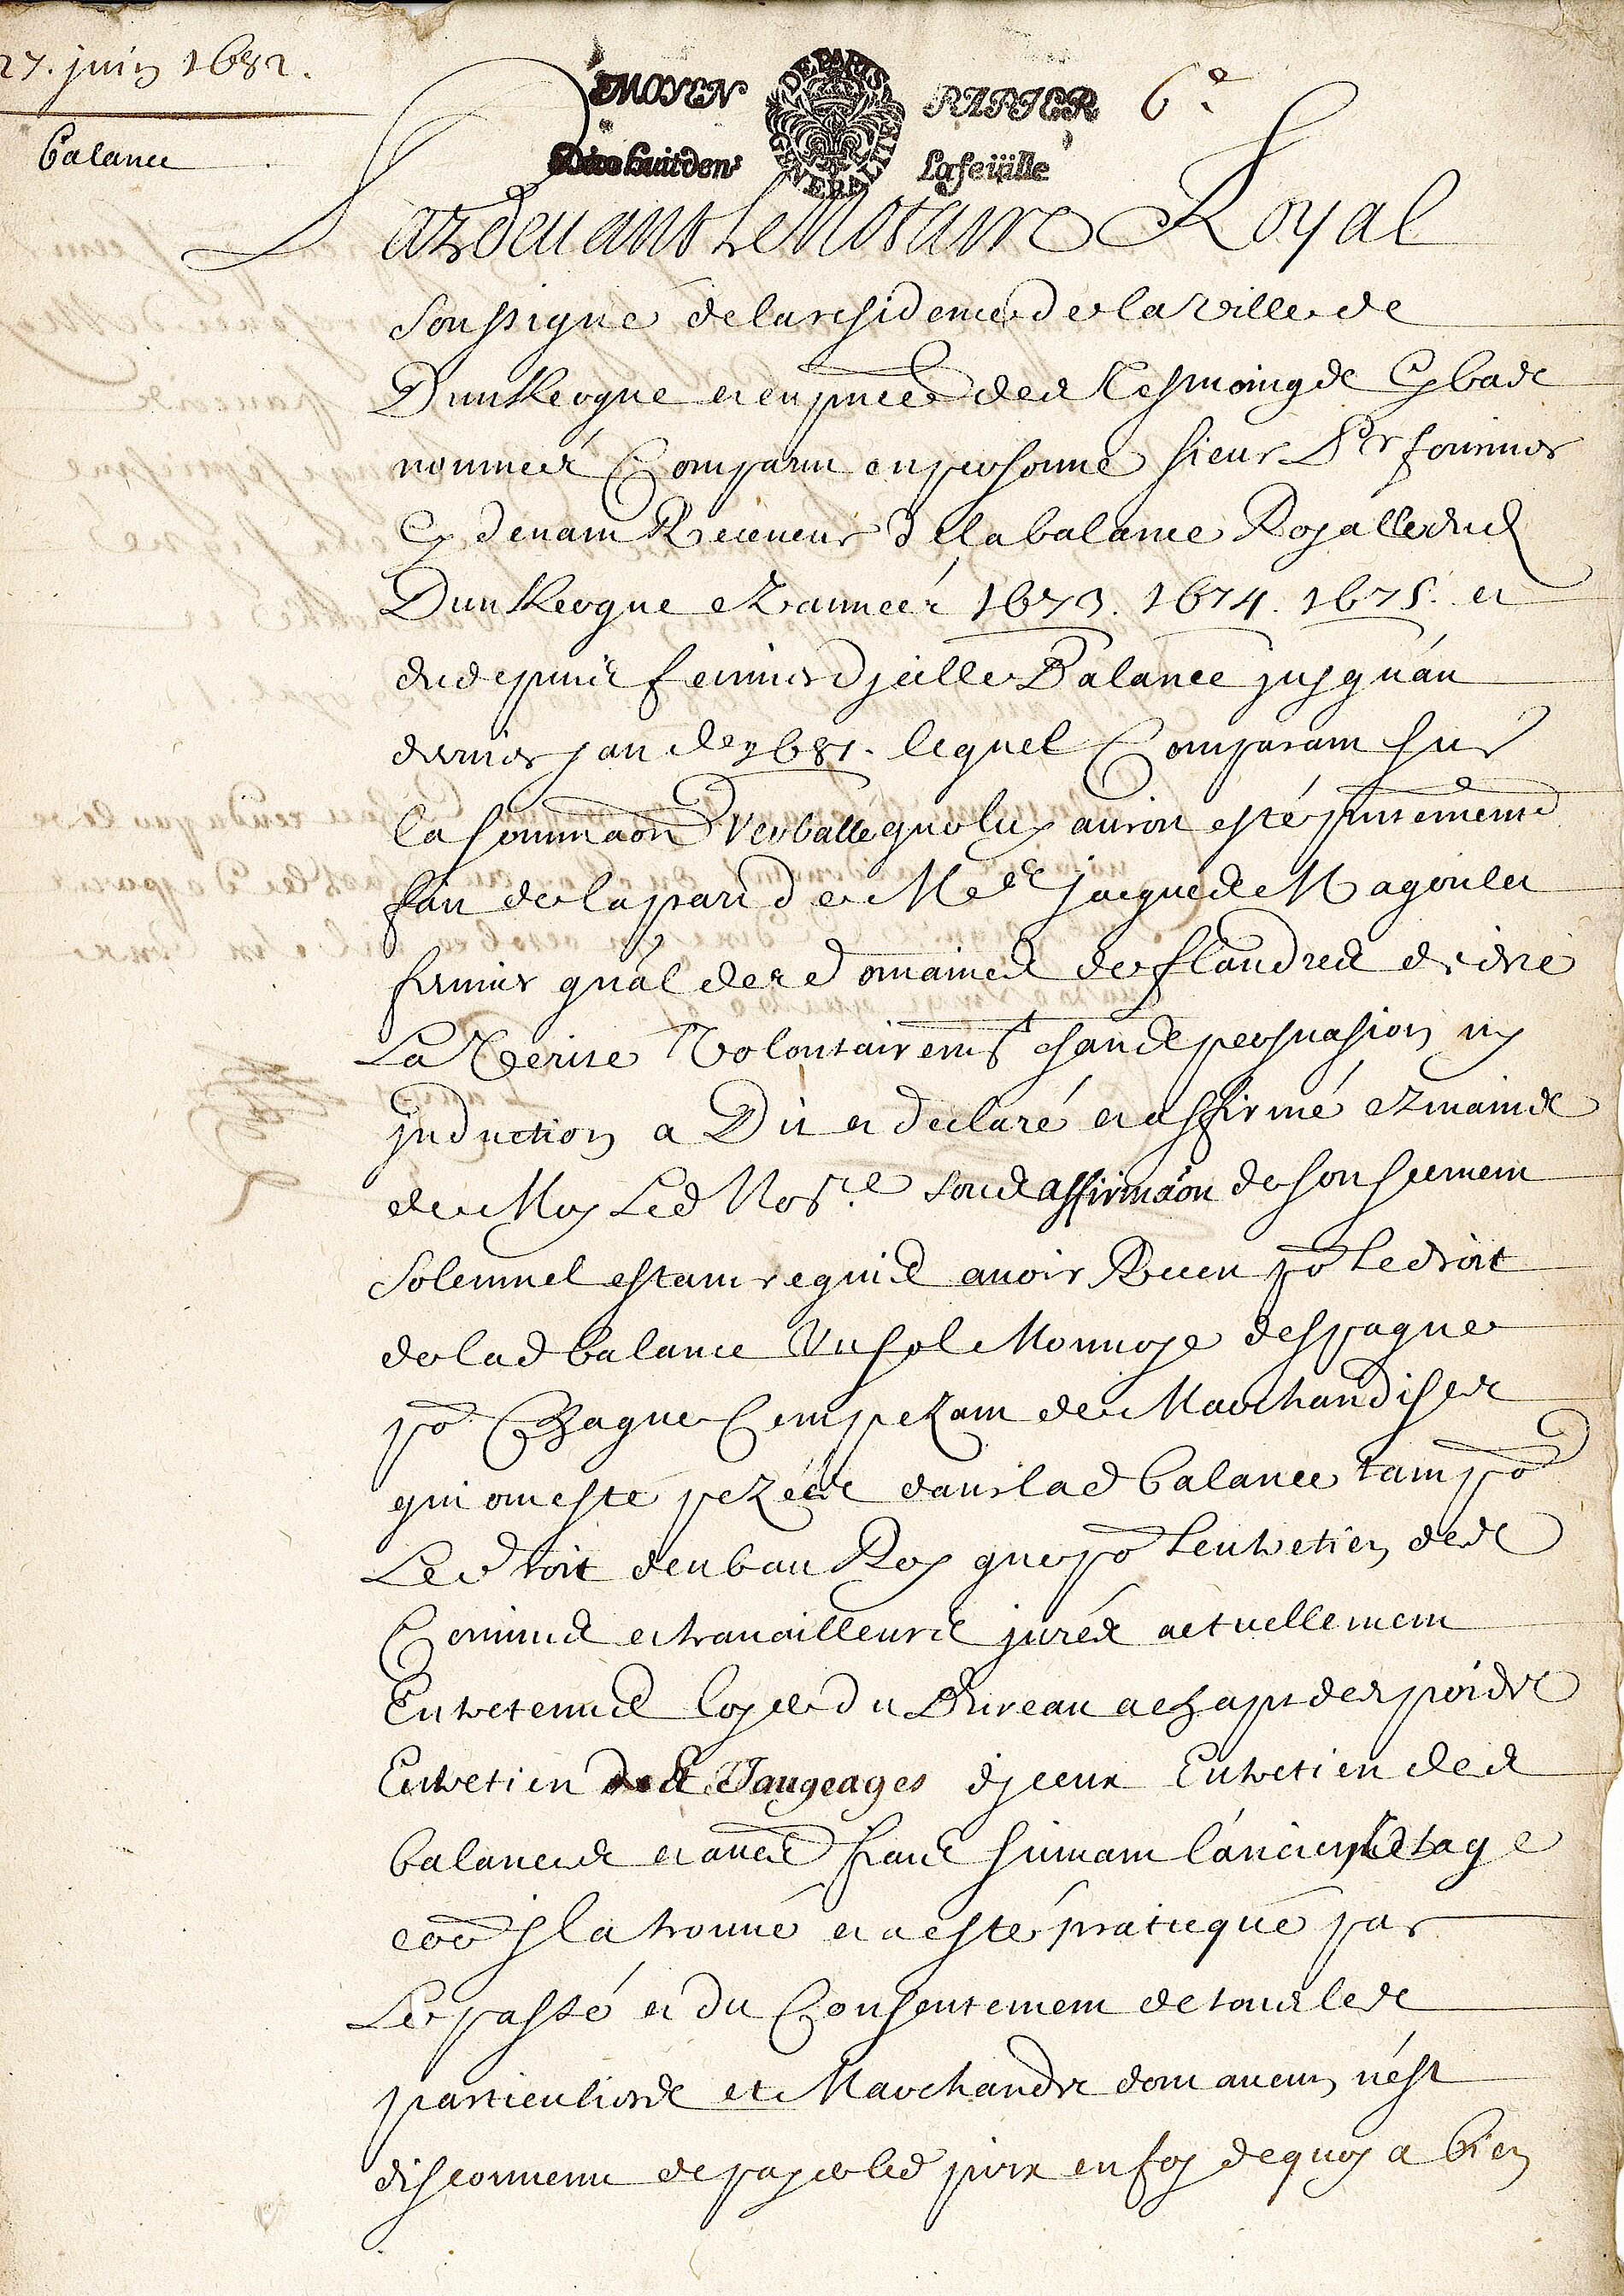 27. juin 1682.
balance
MOYEN PAPIER
DE PARIS GENERALITE
huit den.s La feüille
6e.
Pardeuant Le Notaire Royal
Soussigné de la residence de la ville de
Dunkerque et en pñce des tesmoings Cy bas
nommés Comparu en personne sieur Pr fournier
Cy deuant Receueur de la balance Royalle dud
Dunkerque ez années 1673. 1674. 1675. et
du depuis fermier djcelle Balance jusqu'au
dernier jan de 1681. lequel Comparant sur
la sommãon verballe que luy auroit esté pñtement
fait de la part de Me jacques Magoulet
fermier gñal des domaines de flandres de dire
La Verité Volontairemt sans persuasion ny
jnduction a Dit et declaré et affirmé ez mains
de Moy Led Notre soubs affirmãon de son serment
Solemnel estant requis auoir Receu pō Le droit
de lad balance Un sol Monnoye despagne
pō Chaque Cent pezant de Marchandises
qui ont esté pezées dans lad balance tant pō
Le droit deu au Roy que pō Lentretien des
Commis et trauailleurs jurés actuellement
Entretenus loyer du Bureau achapt des poids
Entretien des Jaugeages djceux Entretien des
balances et autres frais suiuant l'ancien Vsage
cōē jl a trouué et a esté pratiqué par
Le passé et du Consentement de tous les
particuliers et Marchands dont aucun n'est
disconuenu de payer led prix en foy de quoy a bien